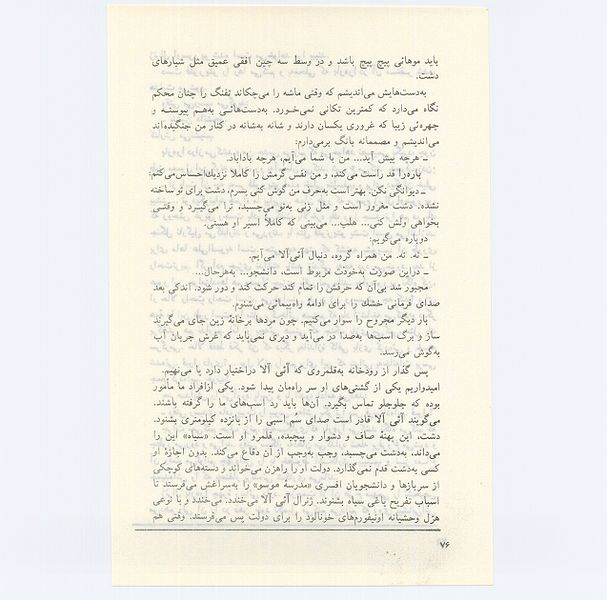 باید موهائی پیچ پیچ باشد و در وسط سه چین افقی عمیق مثل شیارهای
دشت.
به‌دست‌هایش می‌اندیشم که وقتی ماشه را می‌چکاند تفنگ را چنان محکم
نگاه می‌دارد که کمترین تکانی نمی‌خورد. به‌دست‌هائی به‌هم پیوسته و
چهره‌ئی زیبا که غروری یکسان دارند و شانه به‌شانه در کنار من جنگیده‌اند
می‌اندیشم و مصممانه بانگ برمی‌دارم:
ـ هرچه پیش آید... من با شما می‌آیم، هرچه باداباد.
پاره‌را قد راست می‌کند، و من نفس گرمش را کاملاً نزدیك احساس می‌کنم:
ـ دیوانگی نکن. بهتر است به‌حرف من گوش کنی پسرم، دشت برای تو ساخته
نشده. دشت مغرور است و مثل زنی به‌تو می‌چسبد، ترا می‌گیرد و وقتی
بخواهی ولش کنی... هلپ... می‌بینی که کاملاً اسیر او هستی.
دوباره می‌گویم:
ـ نه. نه. من همراه گروه، دنبال آئی‌آلا می‌آیم.
ـ دراین صورت به‌خودت مربوط است، دانشجو... به‌هرحال...
مجبور شد بی‌آن که حرفش را تمام کند حرکت کند و دور شود. اندکی بعد
صدای فرمانی خشك را برای ادامهٔ راه‌پیمائی می‌شنوم.
باز دیگر مجروح را سوار می‌کنیم. چون مردها برخانهٔ زین جای می‌گیرند
ساز و برگ اسب‌ها به‌صدا در می‌آید و دیری نمی‌پاید که غرش جریان آب
به‌گوش می‌رسد.
پس گذار از رودخانه به‌قلمروی که آئی آلا دراختیار دارد پا می‌نهیم.
امیدواریم یکی از گشتی‌های او سر راه‌مان پیدا شود. یکی ازافراد ما مأمور
بوده که جلوجلو تماس بگیرد. آن‌ها باید رد اسب‌های ما را گرفته باشند.
می‌گویند آئی آلا قادر است صدای سُم اسبی را از پانزده کیلومتری بشنود.
دشت، این پهنهٔ صاف و دشوار و پیچیده، قلمرو او است. «سیاه» این را
می‌داند، به‌دشت می‌چسبد، وجب به‌وجب از آن دفاع می‌کند. بدون اجازهٔ او
کسی به‌دشت قدم نمی‌گذارد. دولت او را راهزن می‌خواند و دسته‌های کوچکی
از سربازها و دانشجویان افسری «مدرسهٔ موسو» را به‌سراغش می‌فرستد تا
اسباب تفریح یاغی سیاه بشوند. ژنرال آئی آلا می‌خندد، می‌خندد و با نوعی
هزل وحشیانه اونیفورم‌های خونالود را برای دولت پس می‌فرستد. وقتی هم
۷۶